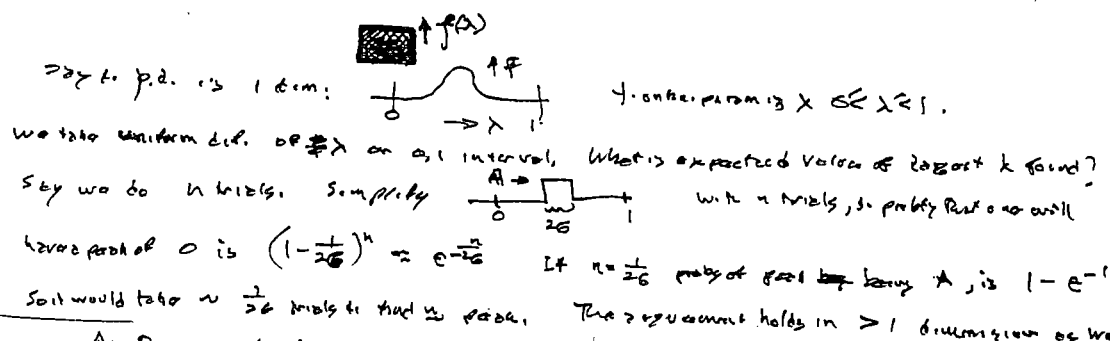 ↑ f(λ)
Say the p.d. is 1 dim: 0 → λ 1 of param is λ 0 ≤ λ ≤ 1.
We take uniform dist. of λ on 0,1 interval. What is expected value of largest found?
Say we do n trials. Simplify A → 0 2σ 1 with n trials, the probty that one will
have a peak of 0 is (1 - 1/2σ)^n ≈ e^{-n/2σ} If n = 1/2σ probty of peak being A, is 1 - e^{-1}
So it would take ~ 1/2σ trials to find peak. The argument holds in > 1 dimension as we